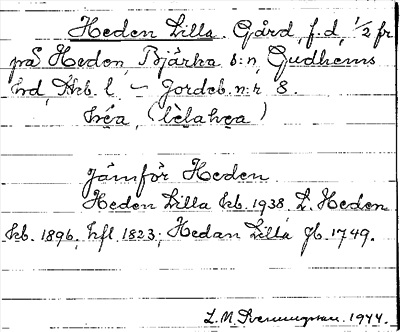 Heden Lilla. Gård, f.d. 1/2 fr
på Heden, Bjärka s:n, Gudhems
hd, Skb. l. – Jordeb. n:r 8.
héa, (lèlahea)
Jämför Heden
Heden Lilla kb. 1938, L. Heden
kb. 1896, hfl. 1823; Hedan Lilla Jb. 1749.
L. M. Svenungsson. 1944.